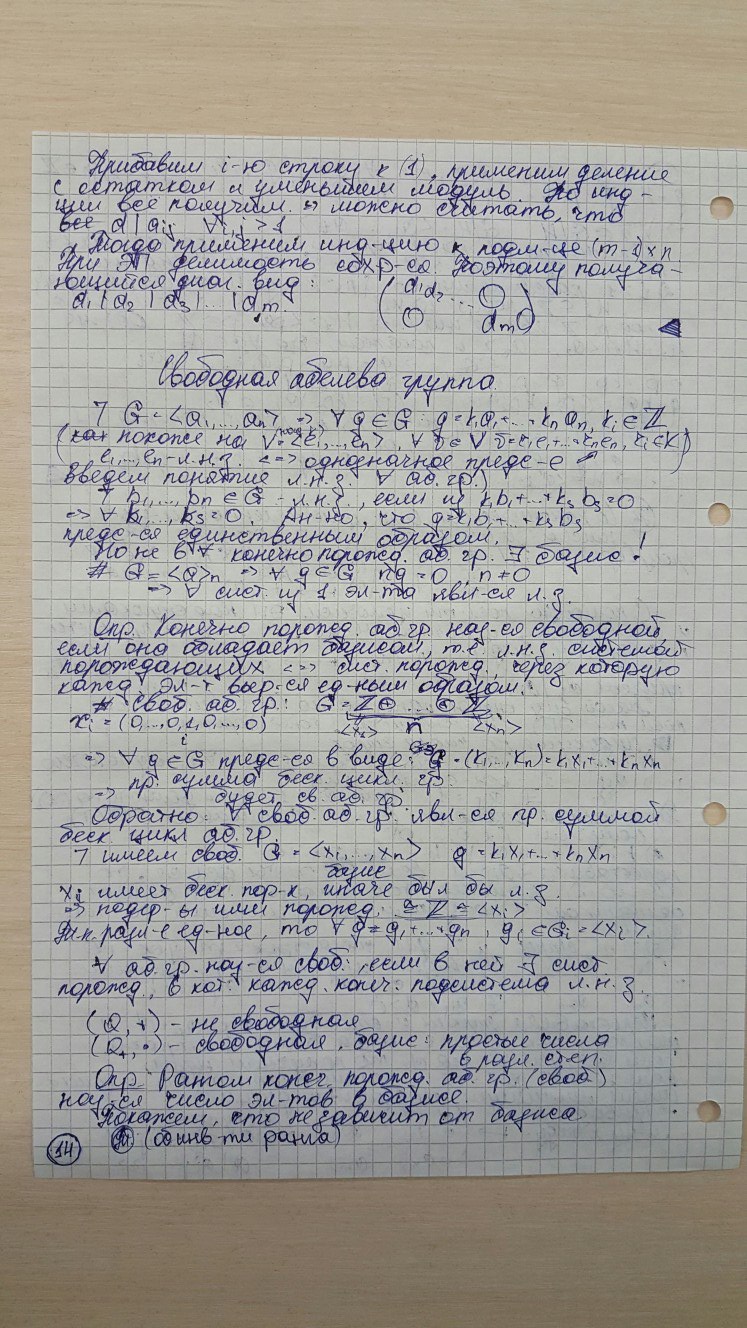 Прибавим i-ю строку к (1), применим деление
с остатком и уменьшаем модуль. По инд-
ции все получим. => можно считать, что
все d | aij ∀ i, j > 1
Тогда применим инд-цию к подм-це (m-1)×n
При ЭП делимость сохр-ся. Поэтому получа-
ющийся диаг. вид:
d1 | d2 | d3 | ... | dm.
(d1 d2 ... 0
0 dm 0)
Свободная абелева группа
] G = <a1, ..., an> => ∀ g ∈ G : g = k1a1 + ... + knan, ki ∈ ℤ
(похоже на V = <e1, ..., en>, ∀ v ∈ V v = k1e1 + ... + knen, ki ∈ K
e1, ..., en - л.н.з. <=> однозначное предс-е)
Введем понятие л.н.з. ∀ аб. гр.
] b1, ..., bn ∈ G - л.н.з., если из k1b1 + ... + ksbs = 0
=> ∀ k1, ..., ks = 0. Ан-но, что g = k1b1 + ... + ksbs
предс-ся единственным образом.
Но не в ∀ конечно порожд. аб. гр. ∃ базис!
# G = <a>n => ∀ g ∈ G ng = 0, n ≠ 0
=> ∀ сист. из 1 эл-та явл-ся л.з.
Опр. Конечно порожд. аб. гр. наз-ся свободной,
если она обладает базисом, т.е. л.н.з. системой
порождающих <=> сист. порожд., через которую
кажд. эл-т выр-ся ед-ным образом.
# своб. аб. гр.: G = ℤ ⊕ ... ⊕ ℤ
xi = (0, ..., 0, 1, 0, ..., 0) <x1> n <xn>
i
=> ∀ g ∈ G предс-ся в виде: g = (k1, ..., kn) = k1x1 + ... + knxn
=> пр. сумма беск. цикл. гр.
будет св. аб. гр.
Обратно: ∀ своб. аб. гр. явл-ся пр. суммой
беск. цикл. аб. гр.
] имеем своб. G = <x1, ..., xn> g = k1x1 + ... + knxn
базис
xi имеет беск. пор-к, иначе был бы л.з.
=> подгр-ы ими порожд. ≅ ℤ ≅ <xi>
Т.к. разл-е ед-ное, то ∀ g = g1 + ... + gn, gi ∈ Gi = <xi>.
∀ аб. гр. наз-ся своб., если в ней ∃ сист.
порожд., в кот. кажд. конеч. подсистема л.н.з.
(Q, +) - не свободная
(Q+, •) - свободная, базис: простые числа
в разл. степ.
Опр. Рангом конеч. порожд. аб. гр. (своб.)
наз-ся число эл-тов в базисе.
Покажем, что не зависит от базиса
(об инв-ти ранга)
14